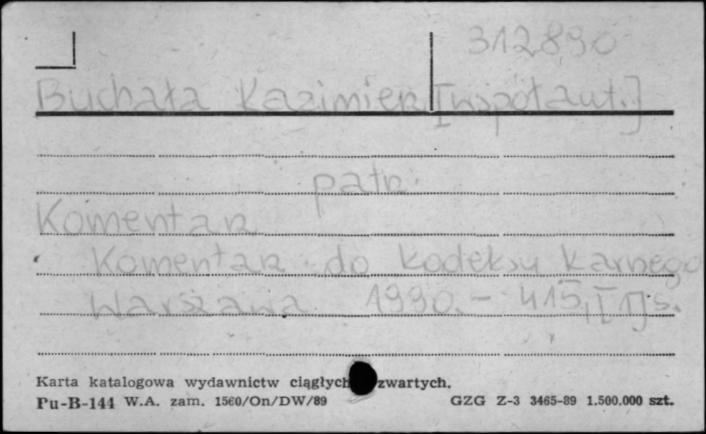 312890
Buchała Kazimierz [współaut.]
patrz
Komentarz
Komentarz do kodeksu karnego
Warszawa 1990. - 415, [1] s.
Karta katalogowa wydawnictw ciągłych zwartych.
Pu-B-144 W.A. zam. 1560/On/DW/89 GZG Z-3 3465-89 1.500.000 szt.